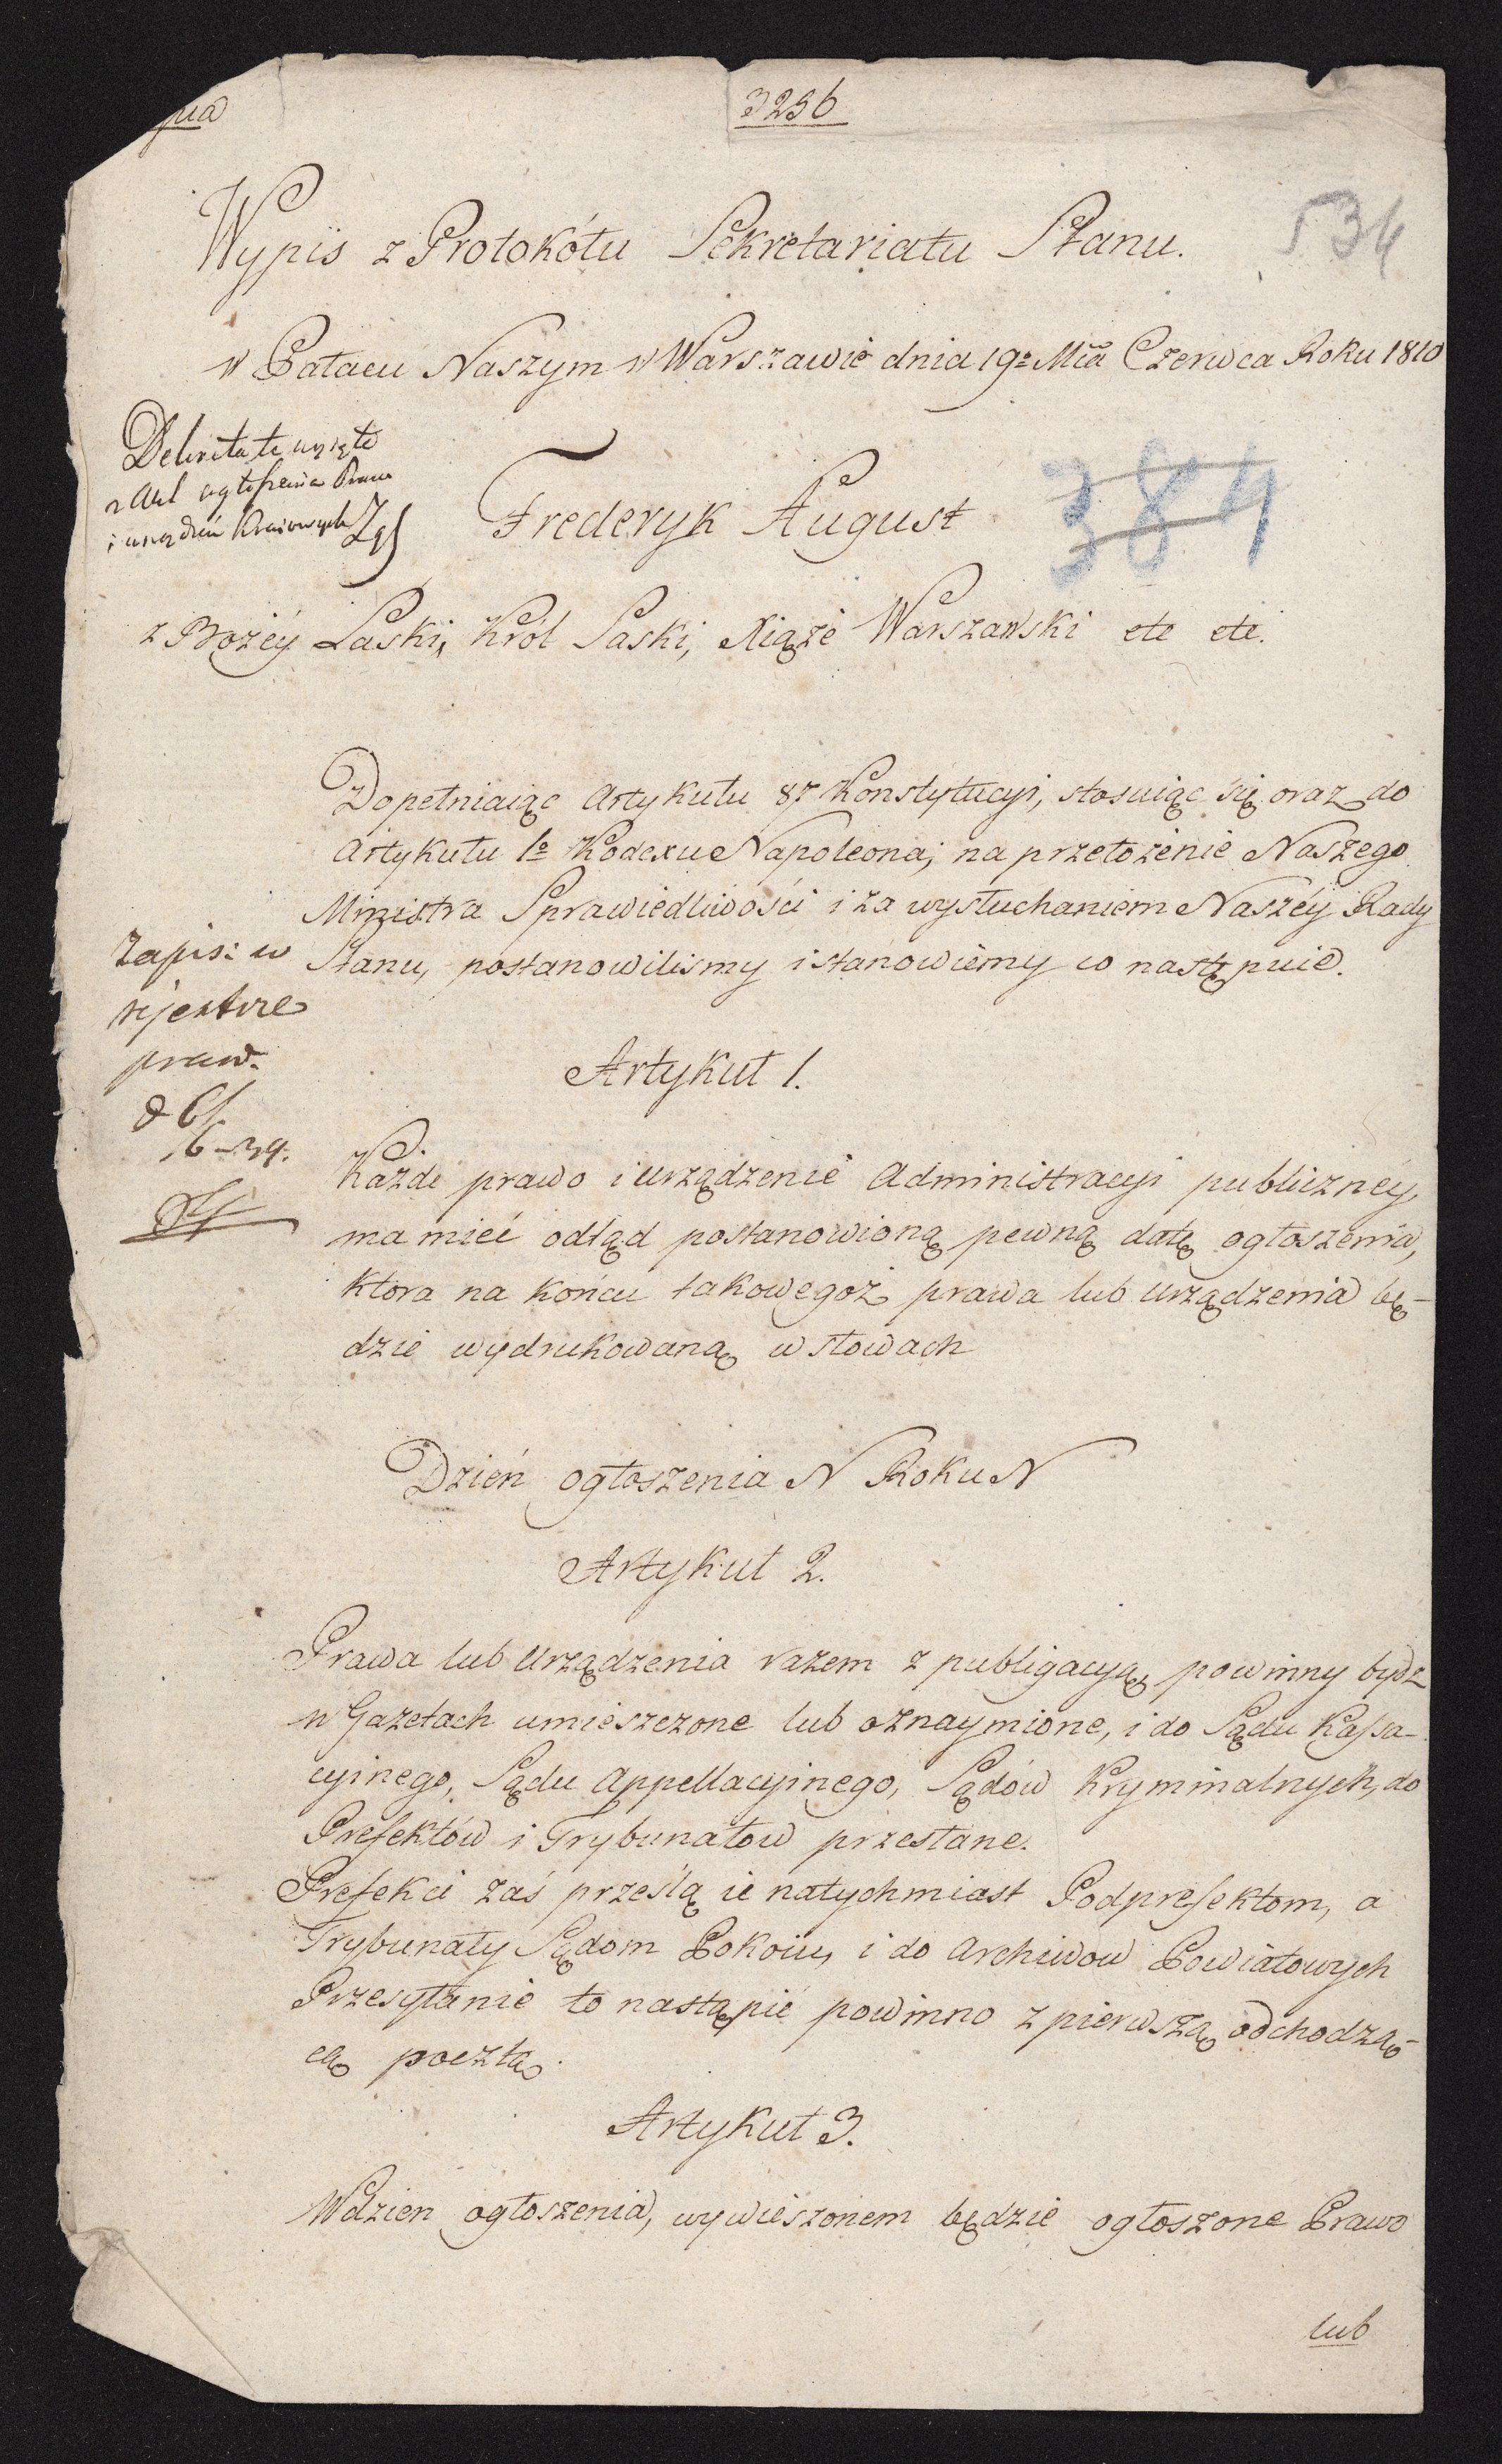 3256
534
Wypis z Protokółu Sekretariatu Stanu.
w Pałacu Naszym w Warszawie dnia 19º Mca Czerwca Roku 1810
Dekreta te wzięte
z Akt ogłoszenia Praw
i urządzeń Kraiowych
Frederyk August
384
z Bożéy Łaski, Król Saski, Xiąże Warszawski etc etc.
Dopełniaiąc Artykułu 87 Konstytucyi, stosuiąc się oraz do
Artykułu 1º Kodexu Napoleona; na przełożenie Naszego
Ministra Sprawiedliwości i za wysłuchaniem Naszéy Rady
Stanu, postanowiliśmy i stanowiemy co następuie.
Zapis: w
rejestrze
praw.
Artykuł 1.
Każde prawo i urządzenie Administracyi publiczney,
ma mieć odtąd postanowioną pewną datę ogłoszenia,
ktora na końcu takowegoż prawa lub urządzenia bę-
dzie wydrukowaną w słowach
Dzień ogłoszenia N Roku N
Artykuł 2.
Prawa lub Urządzenia razem z publigacyą, powinny bydz
w Gazetach umieszczone lub oznaymione, i do Sądu Kassa-
cyinego, Sądu Appellacyinego, Sądów Kryminalnych, do
Prefektów i Trybunałow przesłane.
Prefekci zaś prześlą ie natychmiast Podprefektom, a
Trybunały Sądom Pokoiu, i do Archiwow Powiatowych
Przesyłanie to nastąpić powinno z pierwszą odchodzą-
cą pocztą.
Artykuł 3.
W dzien ogłoszenia, wywieszonem będzie ogłoszone Prawo
lub